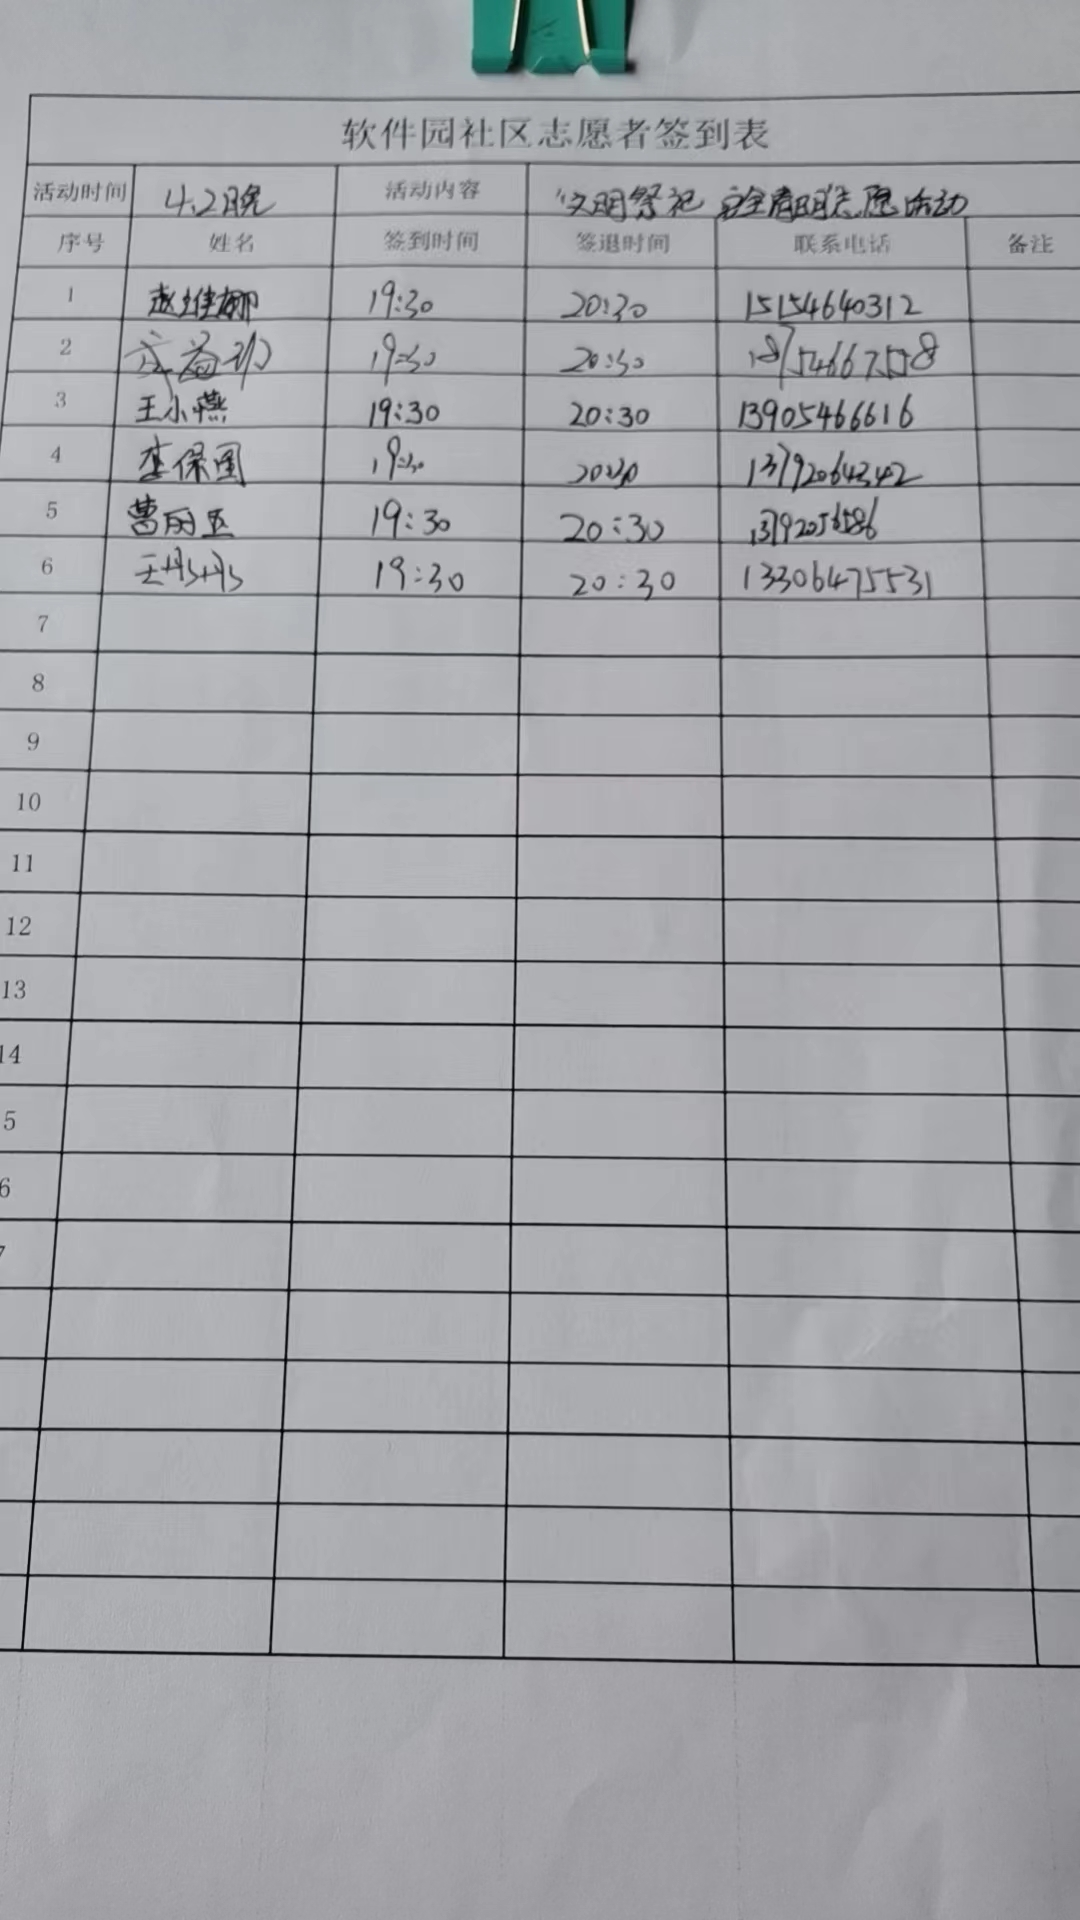 软件园社区志愿者签到表
活动时间 4.2晚 活动内容 "文明祭祀 安全清明志愿活动
序号 姓名 签到时间 签退时间 联系电话 备注
1 赵维娜 19:30 20:30 15154640312
2 19:30 20:30 18754667558
3 王小燕 19:30 20:30 13905466616
4 李保国 19:30 20:30 13792064342
5 曹丽玉 19:30 20:30 13792056586
6 王丹丹 19:30 20:30 13306475531
7
8
9
10
11
12
13
14
5
6
7